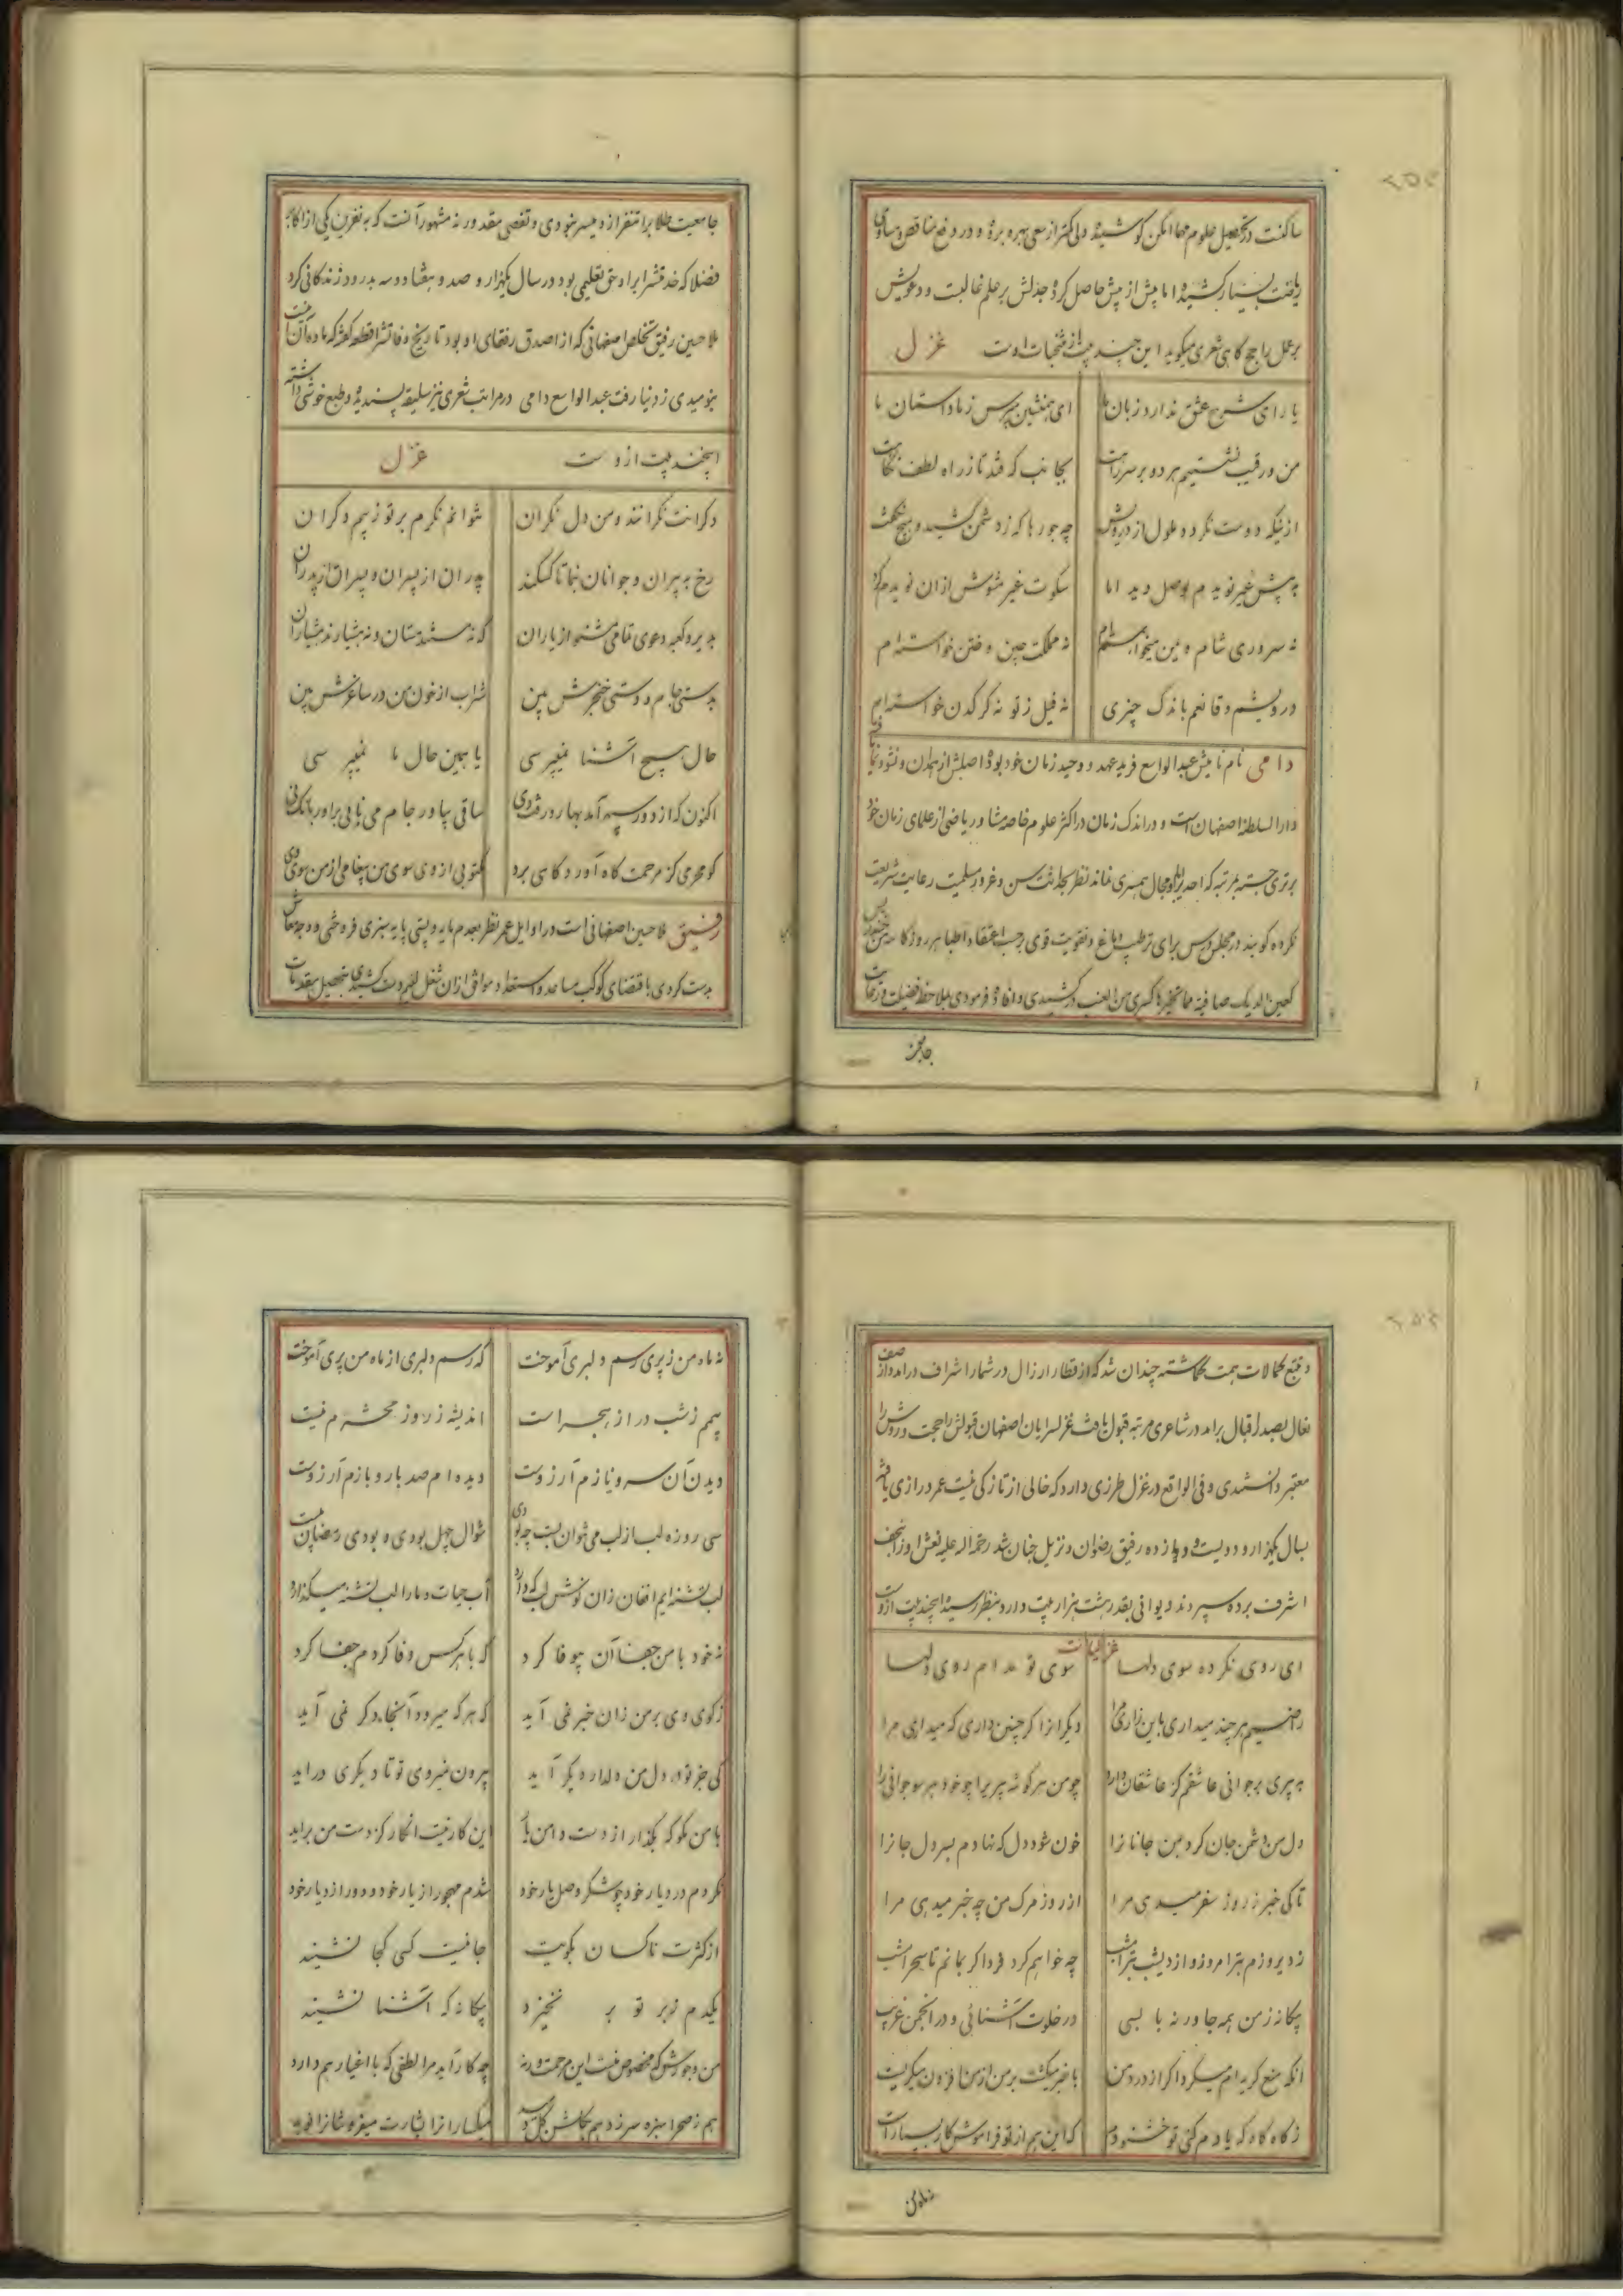 ساکنست در تحصیل علوم مهما امکن کوشیده ولی کمتر از سعی بهره برده و در رفع مناقص و مساوی
ریاضت بسیار کشیده اما پیش از پیش حاصل کرده جدلش بر علم غالبست و دعویش
بر عمل راجح کاهی شعری میکوید این چند بیت از منتخبات اوست غزل
یارای شرح عشق ندارد زبان ما ای همنشین مپرس ز ما داستان ما
من و رقیب نشستیم هر دو بر سر راهت بجانب که فتد تا ز راه لطف نکاهت
چه جورها که ز دشمن کشید و هیچ نکفت
به پیش غیر نویدم بوصل دید اما سکوت غیر مشوش ازان نویدم کرد
نه سروری شام و یمن میخواهم نه مملکت چین و ختن خواسته ام
درویشم و قانعم باندک چیزی نه فیل ز تو نه کرکدن خواسته ام
دامی نام نامیش عبدالواسع فرید عهد و وحید زمان خود بوده اصلش از همدان و نشو و نما
دارالسلطنه اصفهان است و در اندک زمان در اکثر علوم خاصه مشا و ریاضی از علمای زمان خود
برتری جسته بمرتبه که احدیرا با او مجال همسری نماند نظر بحداثت سن و غرور مسلمیت رعایت شریعت
نکرده کویند در مجلس درس برای ترطیب دماغ و تقویت قوی بر حسب اعتقاد اطبا هر روز کاسه
و افاده فرمودی بملاحظه فضیلت و رعایت
جامعیت
جامعیت طلابرا تنفر ازو میسر نبودی و تفصی مقدور نه مشهور آنست که به نفرین یکی از اکابر
فضلا که خدمتشرا براو حق تعلیمی بود در سال یکهزار و صد و هفتاد و سه بدرود زندکانی کرد
ملا حسین رفیق تخلص اصفهانی که از اصدق رفقای او بود تاریخ وفاتشرا قطعه کفته که ماده آن اینست
بنومیدی ز دنیا رفت عبدالواسع دامی در مراتب شعری نیز سلیقه پسندیده و طبع خوشی داشته
اینچند بیت ازوست غزل
دکرانت نکرانند و من دل نکران نتوانم نکرم بر تو ز بیم دکران
رخ به پیران و جوانان بنما تا کسلند پدران از پسران و پسران از پدران
بدیر و کعبه دعوی تمامی مشنو از یاران که نه مستند مستان و نه هشیارند هشیاران
بدستی جام و دستی خنجرش بین شراب از خون من در ساغرش بین
حال هیچ آشنا نمیپرسی یا همین حال ما نمیپرسی
اکنون که از دور سپهر آمد بهار و رفت دی ساقی بیاور جام می نایی براور بانک نی
کو محرمی کز مرحمت کاه آورد کاهی برد مکتوبی از وی سوی من پیغامی از من سوی وی
رفیق ملا حسین اصفهانی است در اوایل عمر نظر بعدم مایه و پستی پایه سبزی فروختی و وجه معاش
بدست کردی باقتضای کوکب مساعد و استعداد موافق ازان شغل نفرت کشیده بتحصیل مقدمات
و تتبع کمالات همت کماشته چندان شد که از قطار ارزال در شمار اشراف درامد و از صف
نعال بصدر اقبال برامد در شاعری مرتبه قبول یافت غزلسرایان اصفهان قبولش را حجت و روشش را
معتبر دانستندی و فی الواقع در غزل طرزی دارد که خالی از تازکی نیست عمر درازی یافته
بسال یکهزار و دویست و دوازده رفیق رضوان و نزیل جنان شد رحمة الله علیه نعش او را نجف
اشرف برده سپردند دیوانی بقدر هشت هزار بیت دارد بنظر رسیده اینچند بیت ازوست
غزلیات
ای روی نکرده سوی دلها سوی تو مدام روی دلها
راضیم هر چند میداری باین زاری مرا دیکرانرا کر چنین داری که میداری مرا
به پیری بر جوانی عاشقم کز عاشقان دارد چو من هر کوشه پیریرا چو خود هر سو جوانی را
دل من دشمن جان کرد بمن جانانرا خون شود دل که نهادم بسر دل جانرا
تا کی خبر ز روز سفر میدهی مرا از روز مرک من چه خبر میدهی مرا
ز دیروزم بتر امروز و از دیشب بتر امشب چه خواهم کرد فردا کر بمانم تا سحر امشب
بیکانه ز من همه جا ورنه با بسی در خلوت آشنائی و در انجمن غریب
انکه منع کریه ام میکرد اکر از درد من با خبر میکشت بر من از من افزون میکریست
ز کاه کاه که یادم کنی تو خشنودم که این هم از تو فراموش کار بسیار است
نه ماه من
نه ماه من ز پری رسم دلبری آموخت که رسم دلبری از ماه من پری آموخت
بیم ز شب دراز هجر است اندیشه ز روز محشرم نیست
دیدن آن سرو نازم آرزوست دیده ام صد بار و بازم آرزوست
سی روزه لب از لب می نتوان بست چه بودی شوال چهل بودی و بودی رمضان بیست
لب تشنه ایم افغان زان نوش لب که دارد آب حیات و ما را لب تشنه میکذارد
نه خود با من جفا آن بیوفا کرد که با هر کس وفا کردم جفا کرد
ز کوی وی بر من زان خبر نمی آید که هر که میرود آنجا دکر نمی آید
کی جز تو در دل من دلدار دیکر آید بیرون نمیروی تو تا دیکری دراید
با من مکو که بکذار از دست دامن یار این کار نیست انکار کز دست من براید
نکردم در دیار خود چو شکر وصل یار خود شدم مهجور از یار خود و دور از دیار خود
از کثرت ناکسان بکویت جا نیست کسی کجا نشیند
یکدم ز بر تو بر نخیزد بیکانه که آشنا نشیند
من و جورش که مخصوص منست این مرحمت ورنه چه کار آید مرا لطفی که با اغیار هم دارد
هم ز صحرا سبزه سر زد هم بکلشن کل دمید میکسارانرا بشارت میفروشانرا نوید